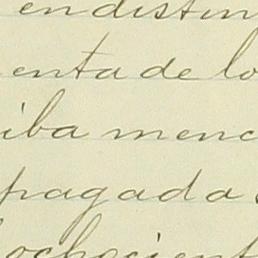 en distin
enta de lo
iba menc
pagada
ochocient